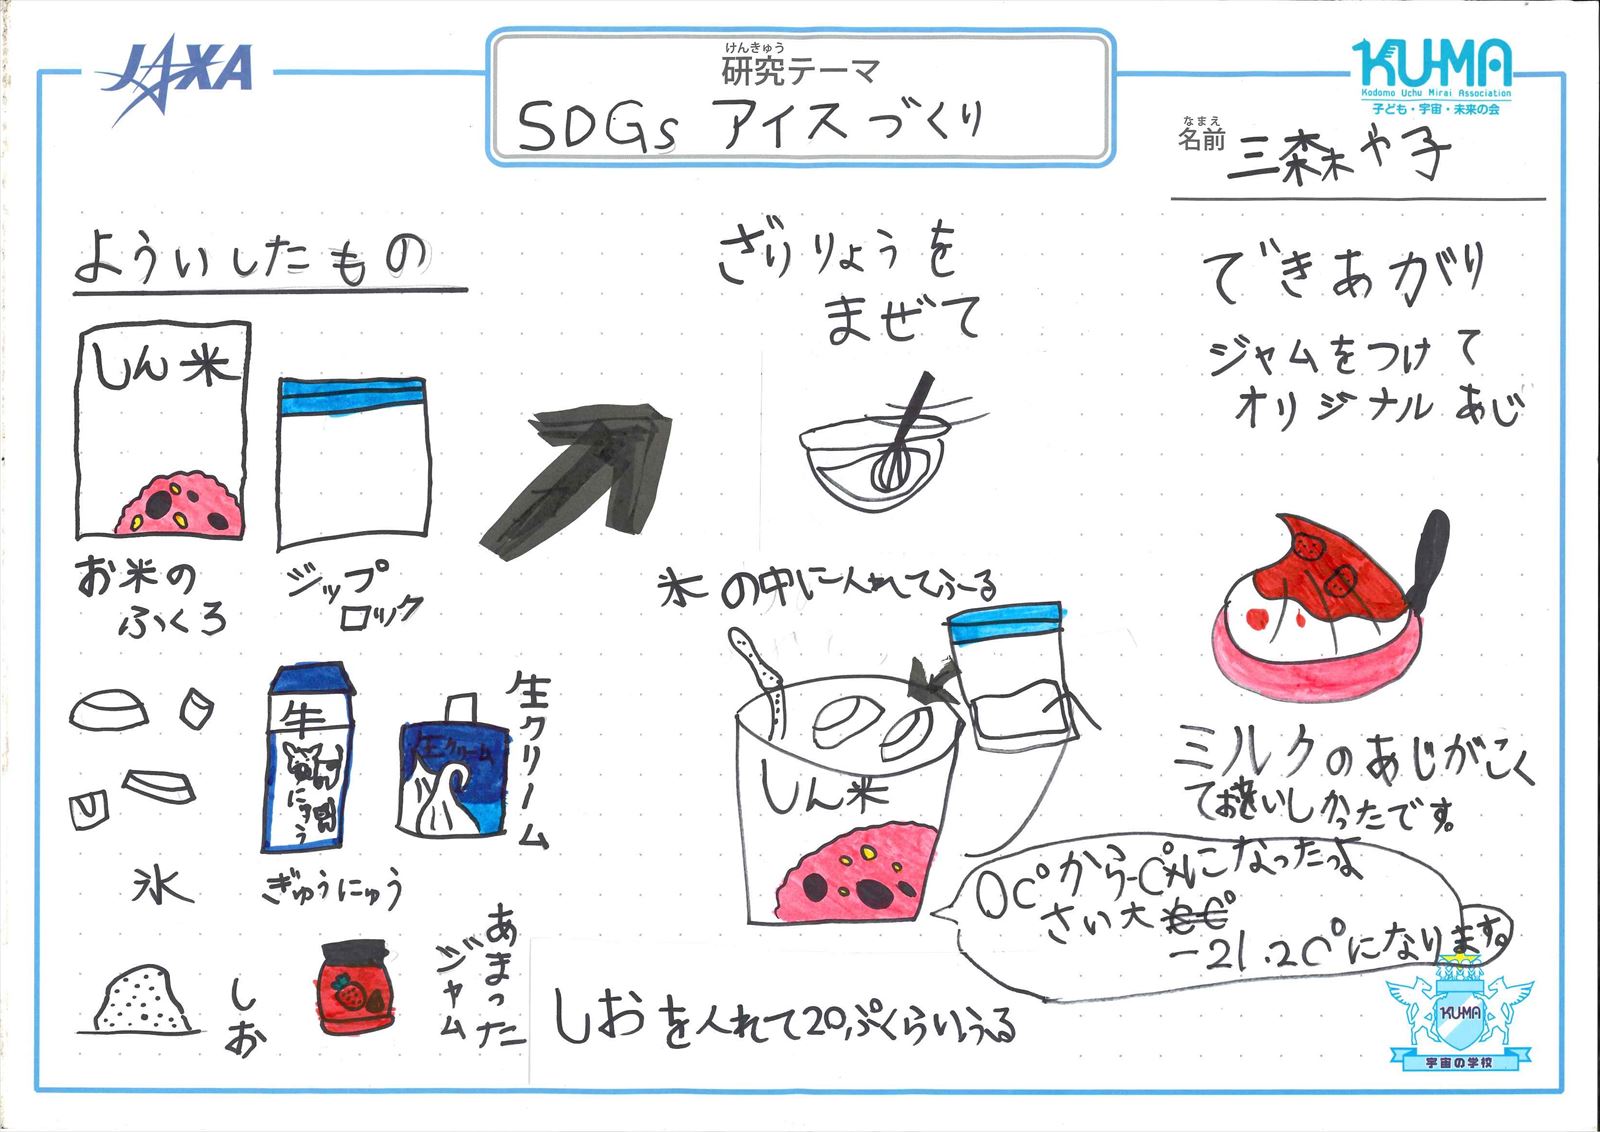 JAXA
けんきゅう
研究テーマ
SDGs アイスづくり
KU-MA
Kodomo Uchu Mirai Association
子ども・宇宙・未来の会
なまえ
名前
三森や子
よういしたもの
しん米
お米の
ふくろ
ジップ
ロック
氷
牛
にゅう
ぎゅうにゅう
生クリーム
生クリーム
しお
あまった
ジャム
ざいりょうを
まぜて
氷の中に入れてふーる
しん米
0C°から-C°
になったよ
さい大
-21.2C°になります。
しおを入れて20ぷくらいふる
できあがり
ジャムをつけて
オリジナルあじ
ミルクのあじがこく
ておいしかったです。
KU-MA
宇宙の学校